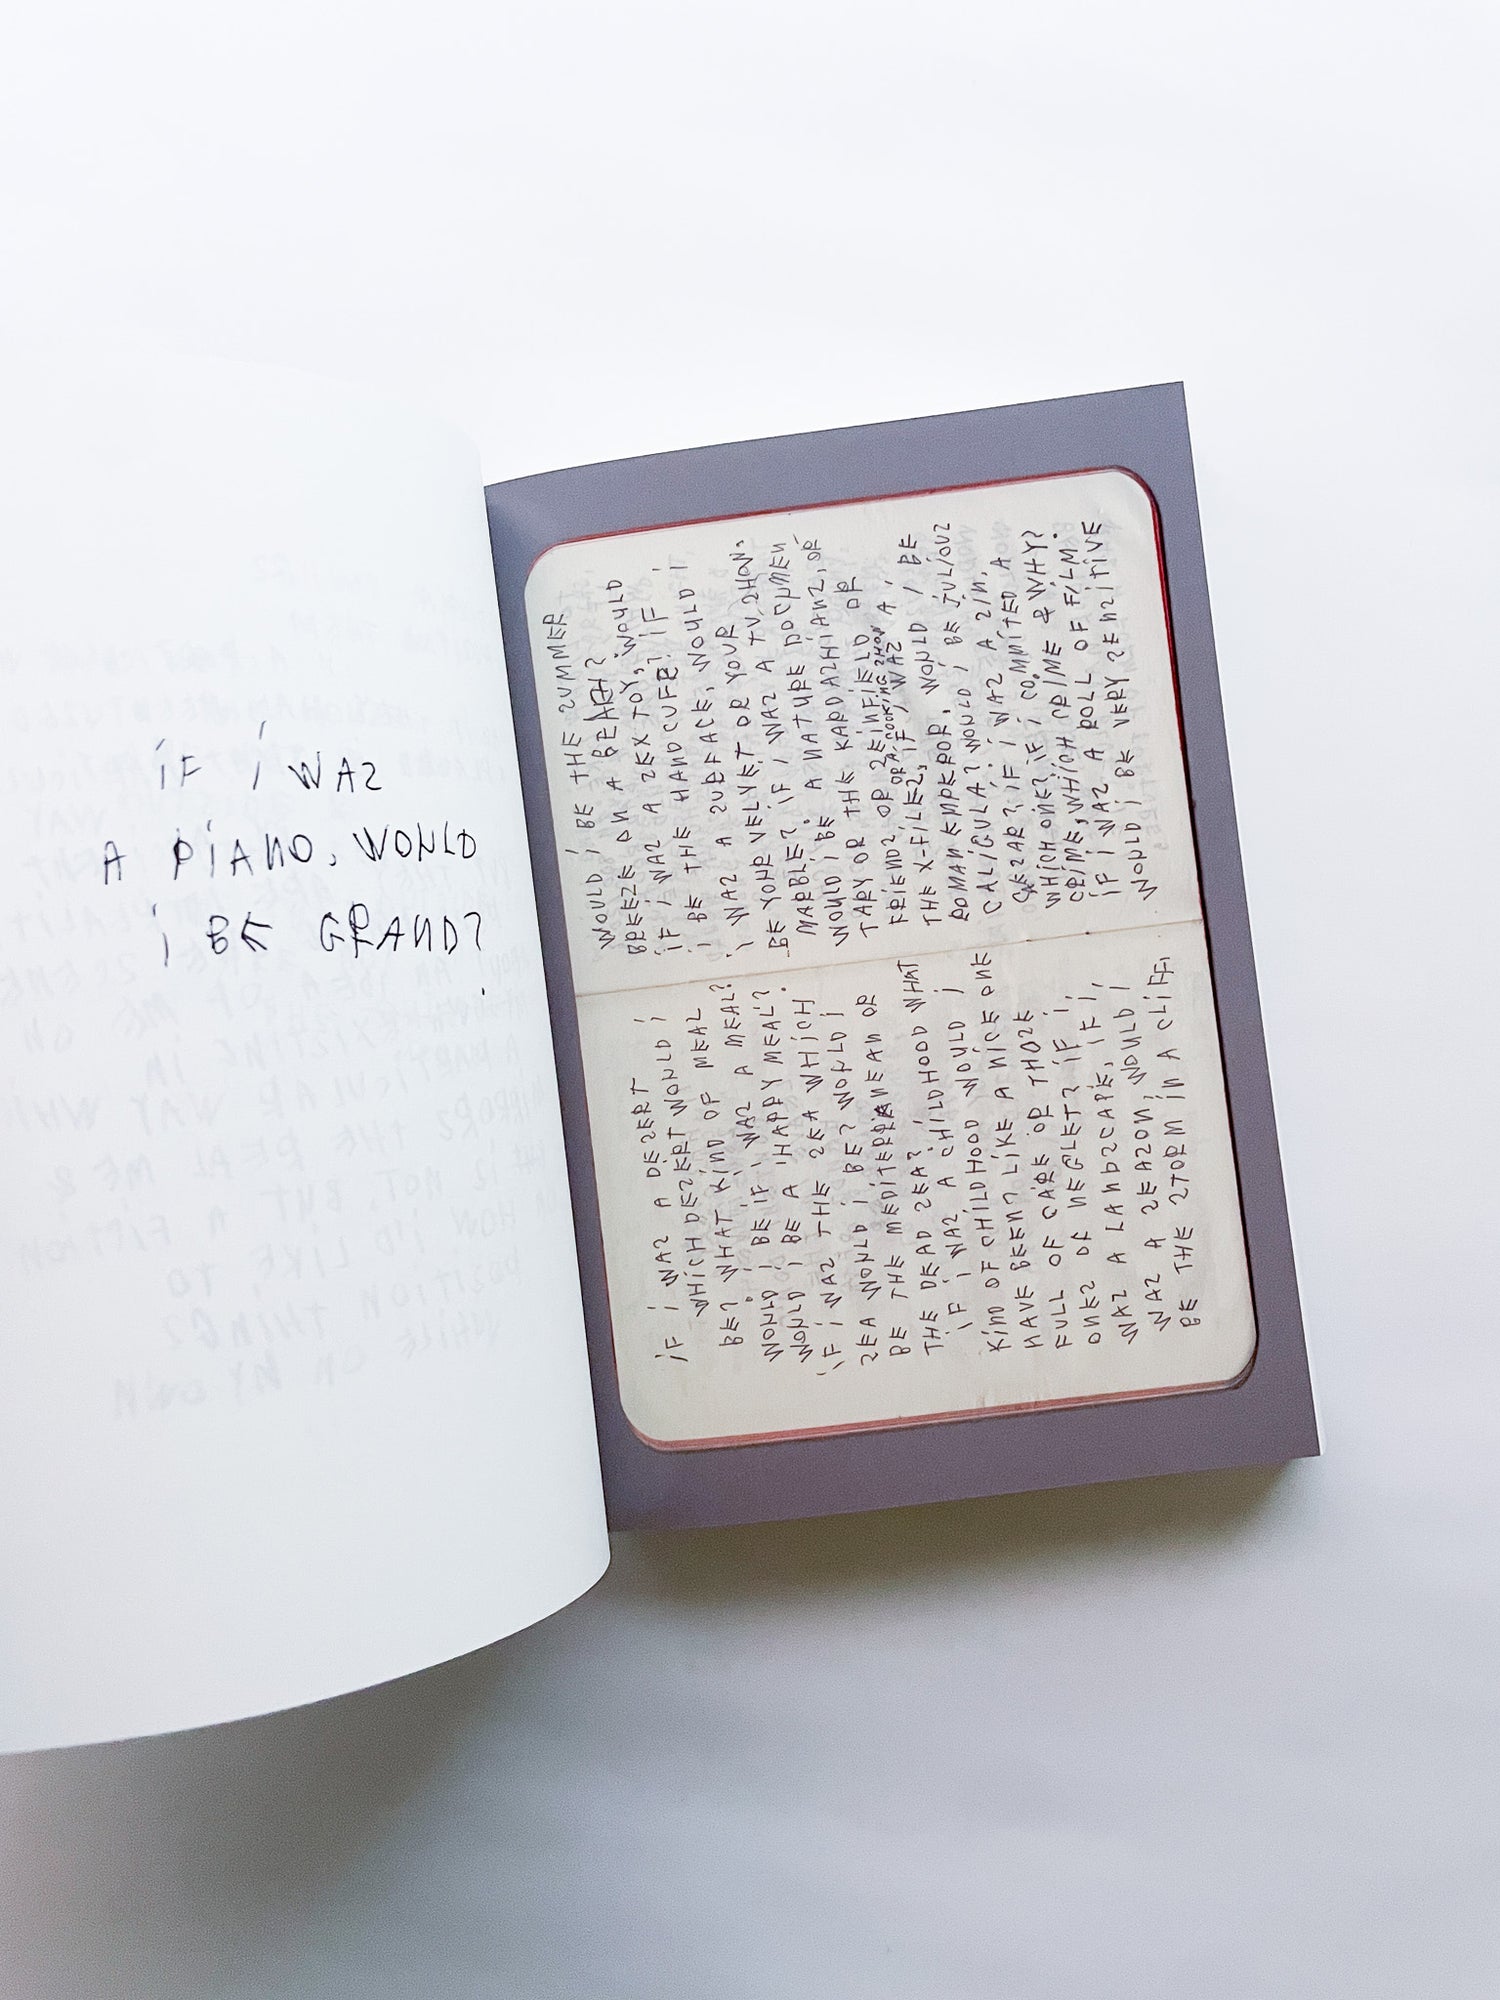 IF I WAZ
A PIANO, WOULD
I BE GRAND?
IF I WAZ A DEZERT
WHICH DEZERT WOULD I
BE? WHAT KIND OF MEAL
WOULD I BE IF I WAZ A MEAL?
WOULD I BE A HAPPY MEAL?
IF I WAZ THE ZEA WHICH
ZEA WOULD I BE? WOULD I
BE THE MEDITERRANEAN OR
THE DEAD ZEA?
IF I WAZ A CHILDHOOD WHAT
KIND OF CHILDHOOD WOULD I
HAVE BEEN? LIKE A NICE ONE
FULL OF CARE OR THOZE
ONEZ OF NEGLET? IF I,
WAZ A LANDZCAPE, IF I,
WAZ A ZEAZON, WOULD I
BE THE ZTORM IN A CLIFF,
WOULD I BE THE ZUMMER
BREEZE ON A BEACH?
IF I WAZ A ZEX TOY, WOULD
I BE THE HANDCUFF? IF
I WAZ A ZURFACE, WOULD I
BE YOUR VELVET OR YOUR
MARBLE? IF I WAZ A TV ZHOW,
WOULD I BE A NATURE DOCUMEN
TARY OR THE KARDAZHIANZ, OR
FRIENDZ OR ZEINFIELD OR
OR A COOKING ZHOW
THE X-FILEZ, IF I WAZ A
ROMAN EMPEROR, WOULD I BE
CALIGULA? WOULD I BE JULIOUZ
CEZAR? IF I WAZ A ZIN,
WHICH ONE? IF I COMMITED A
CRIME, WHICH CRIME & WHY?
IF I WAZ A ROLL OF FILM.
WOULD I BE VERY ZENZITIVE